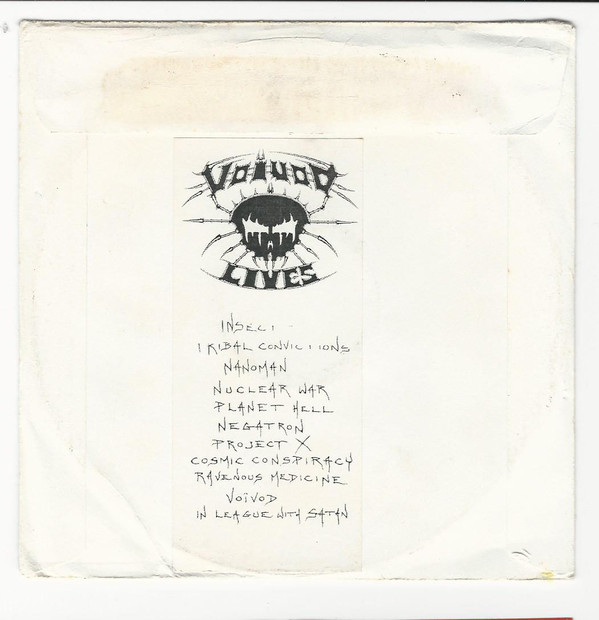 VOIVOD
LIVES
INSECT
TRIBAL CONVICTIONS
NANOMAN
NUCLEAR WAR
PLANET HELL
NEGATRON
PROJECT X
COSMIC CONSPIRACY
RAVENOUS MEDICINE
VOÏVOD
IN LEAGUE WITH SATAN